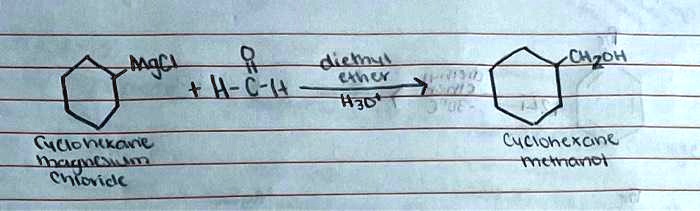 MgCl
+ H-C-H
O
diethyl
ether
H3O+
CH2OH
Cyclohexane
magnesium
Chloride
Cyclohexane
methanol